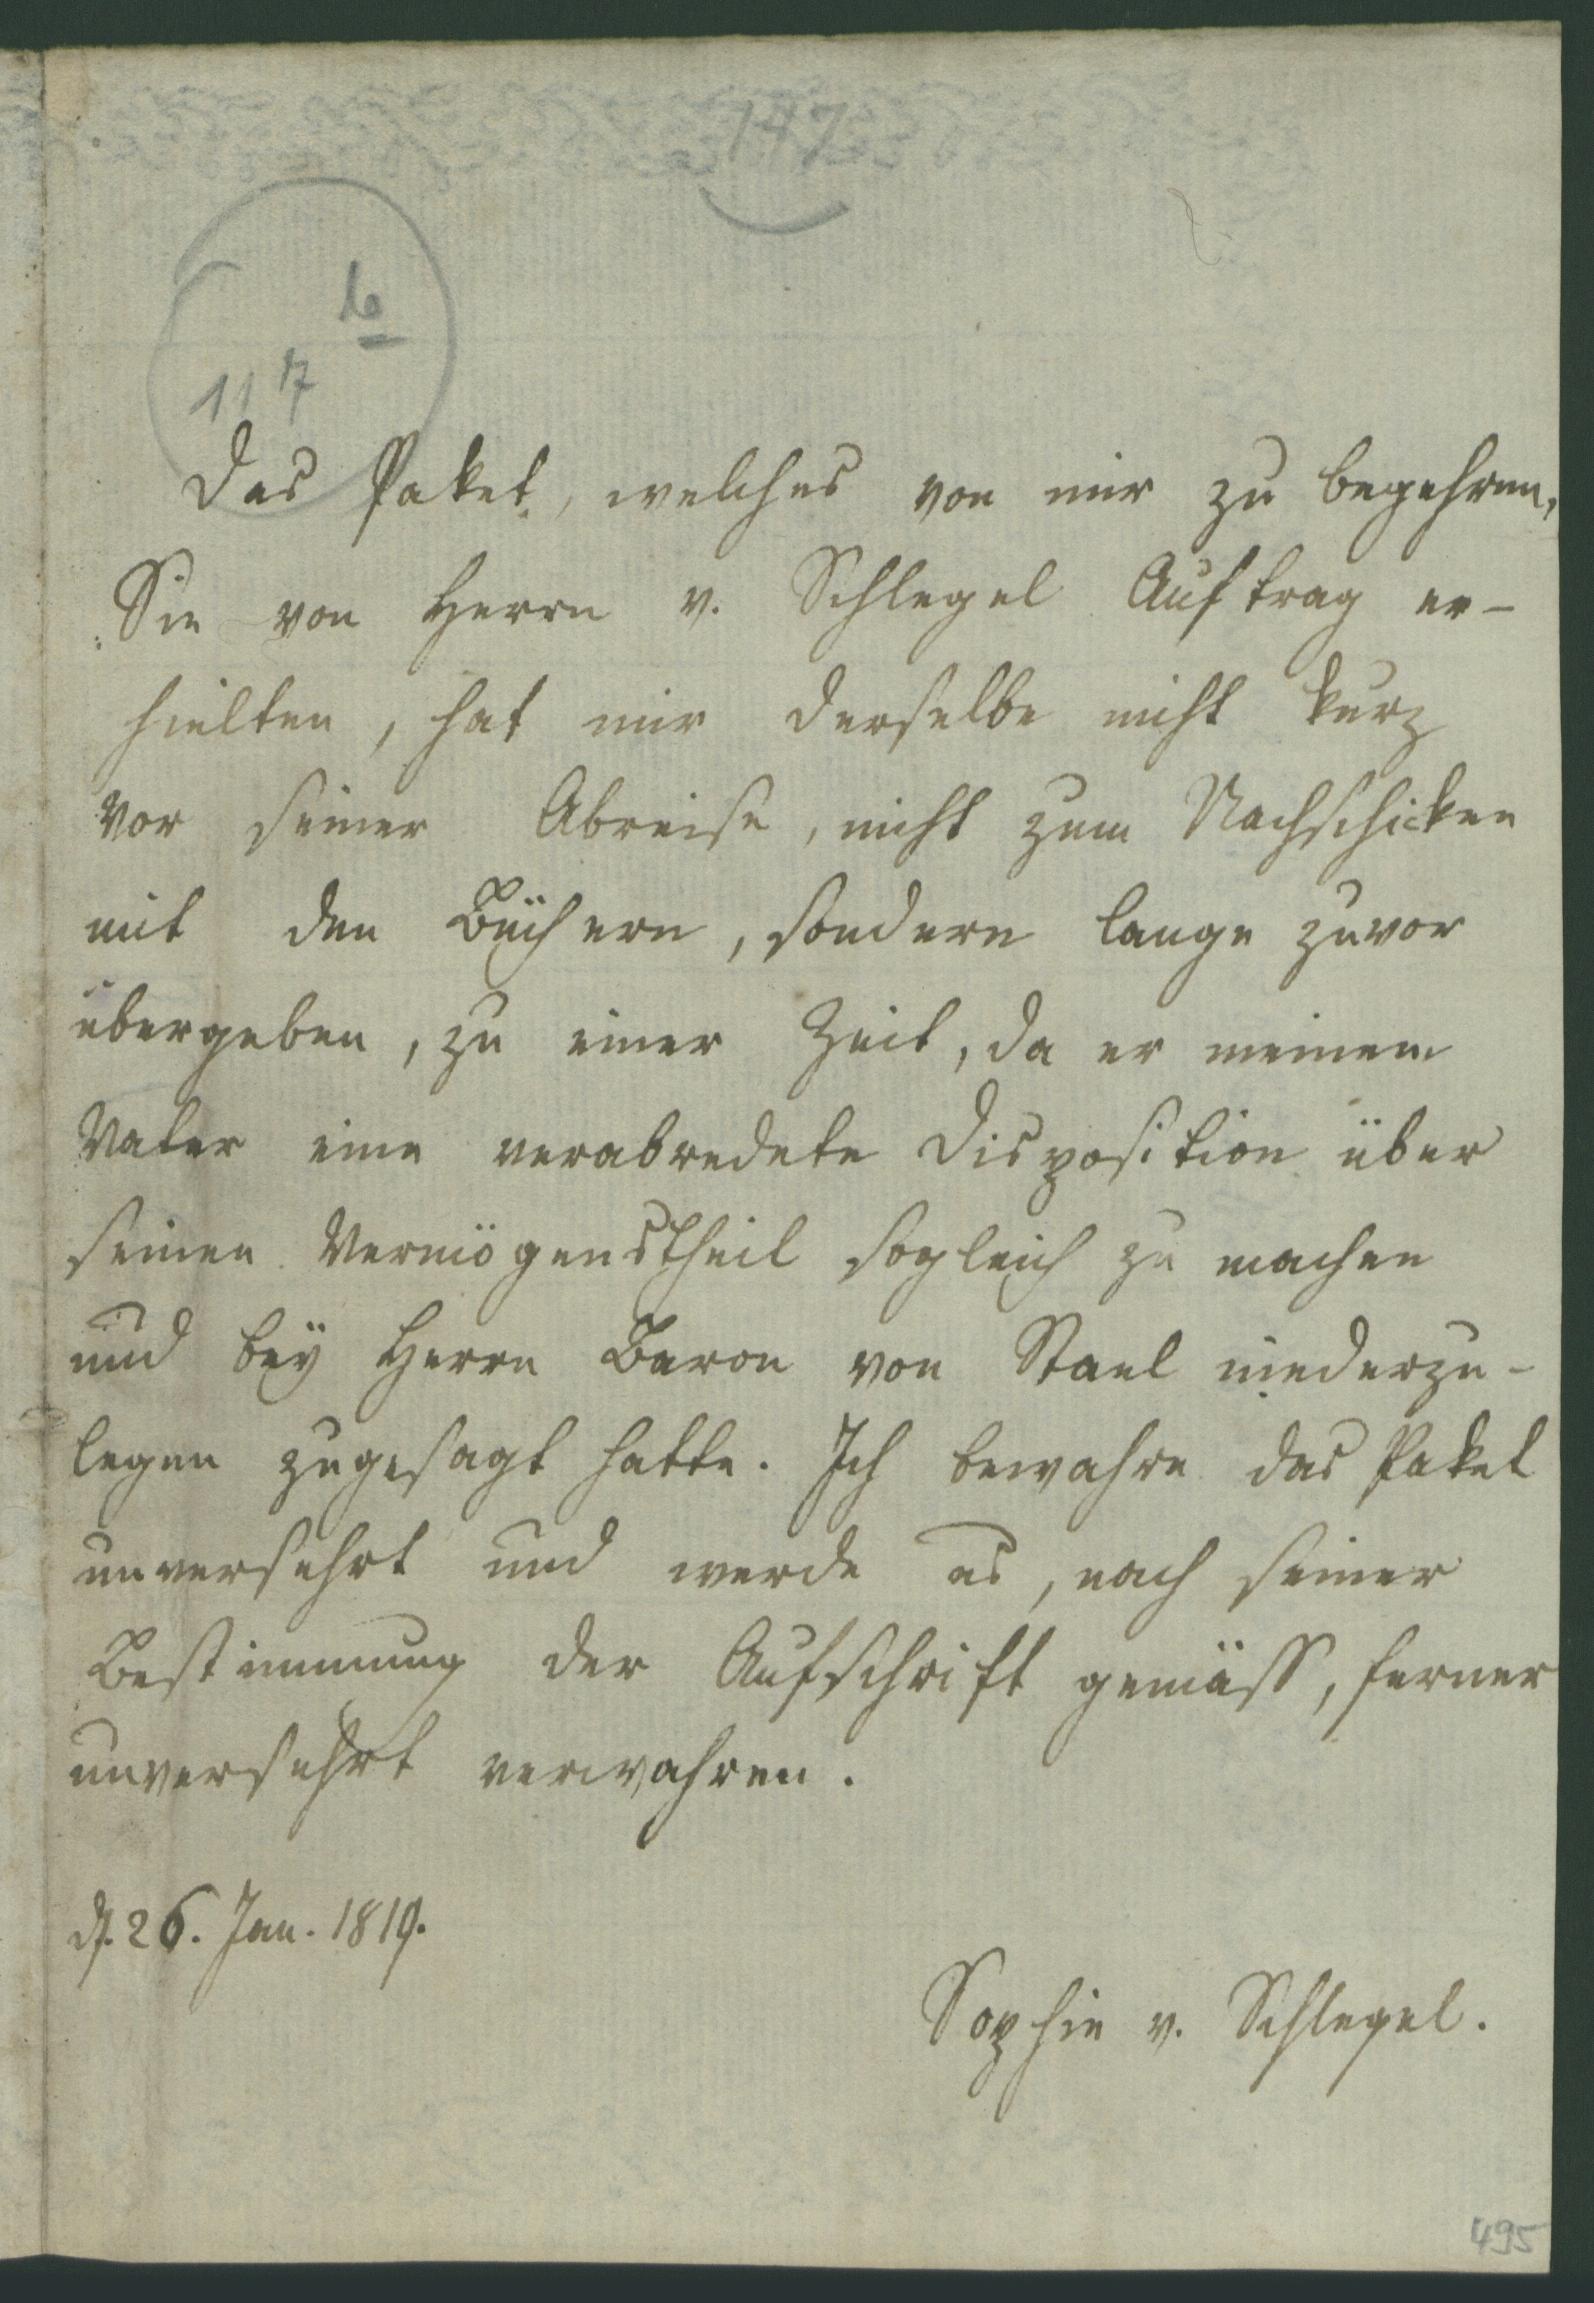 147
b
117
Das Paket, welches von mir zu begehren,
Sie von Herrn v. Schlegel Auftrag er-
hielten, hat mir derselbe nicht kurz
vor seiner Abreise, nicht zum Nachschicken
mit den Büchern, sondern lange zuvor
übergeben, zu einer Zeit, da er meinem
Vater eine verabredete Disposition über
seinen Vermögenstheil sogleich zu machen
und bey Herrn Baron von Stael niederzu-
legen zugesagt hatte. Ich bewahre das Paket
unversehrt und werde es, nach seiner
Bestimmung der Aufschrift gemäss, ferner
unversehrt verwahren.
d. 26. Jan. 1819.
Sophie v. Schlegel.
495